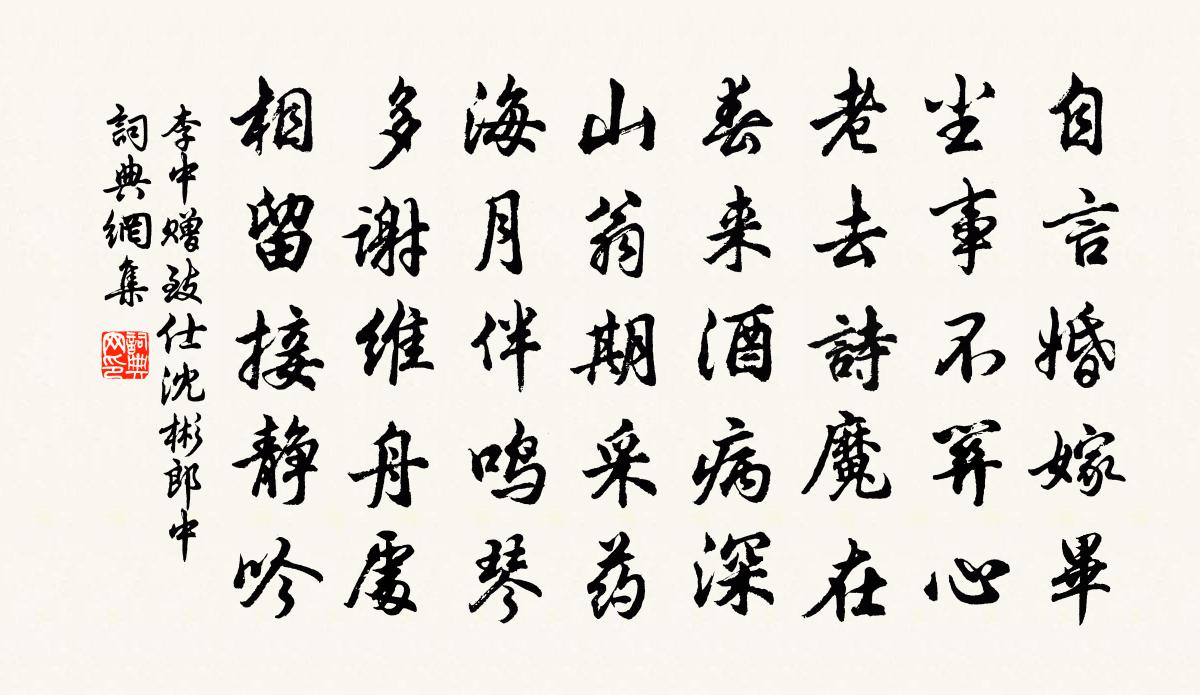 自言婚嫁畢
尘事不关心
老去詩魔在
春来酒病深
山翁期采药
海月伴鸣琴
多谢维舟處
相留接静吟
李中赠致仕沈彬郎中
詞典網集
詞典网印